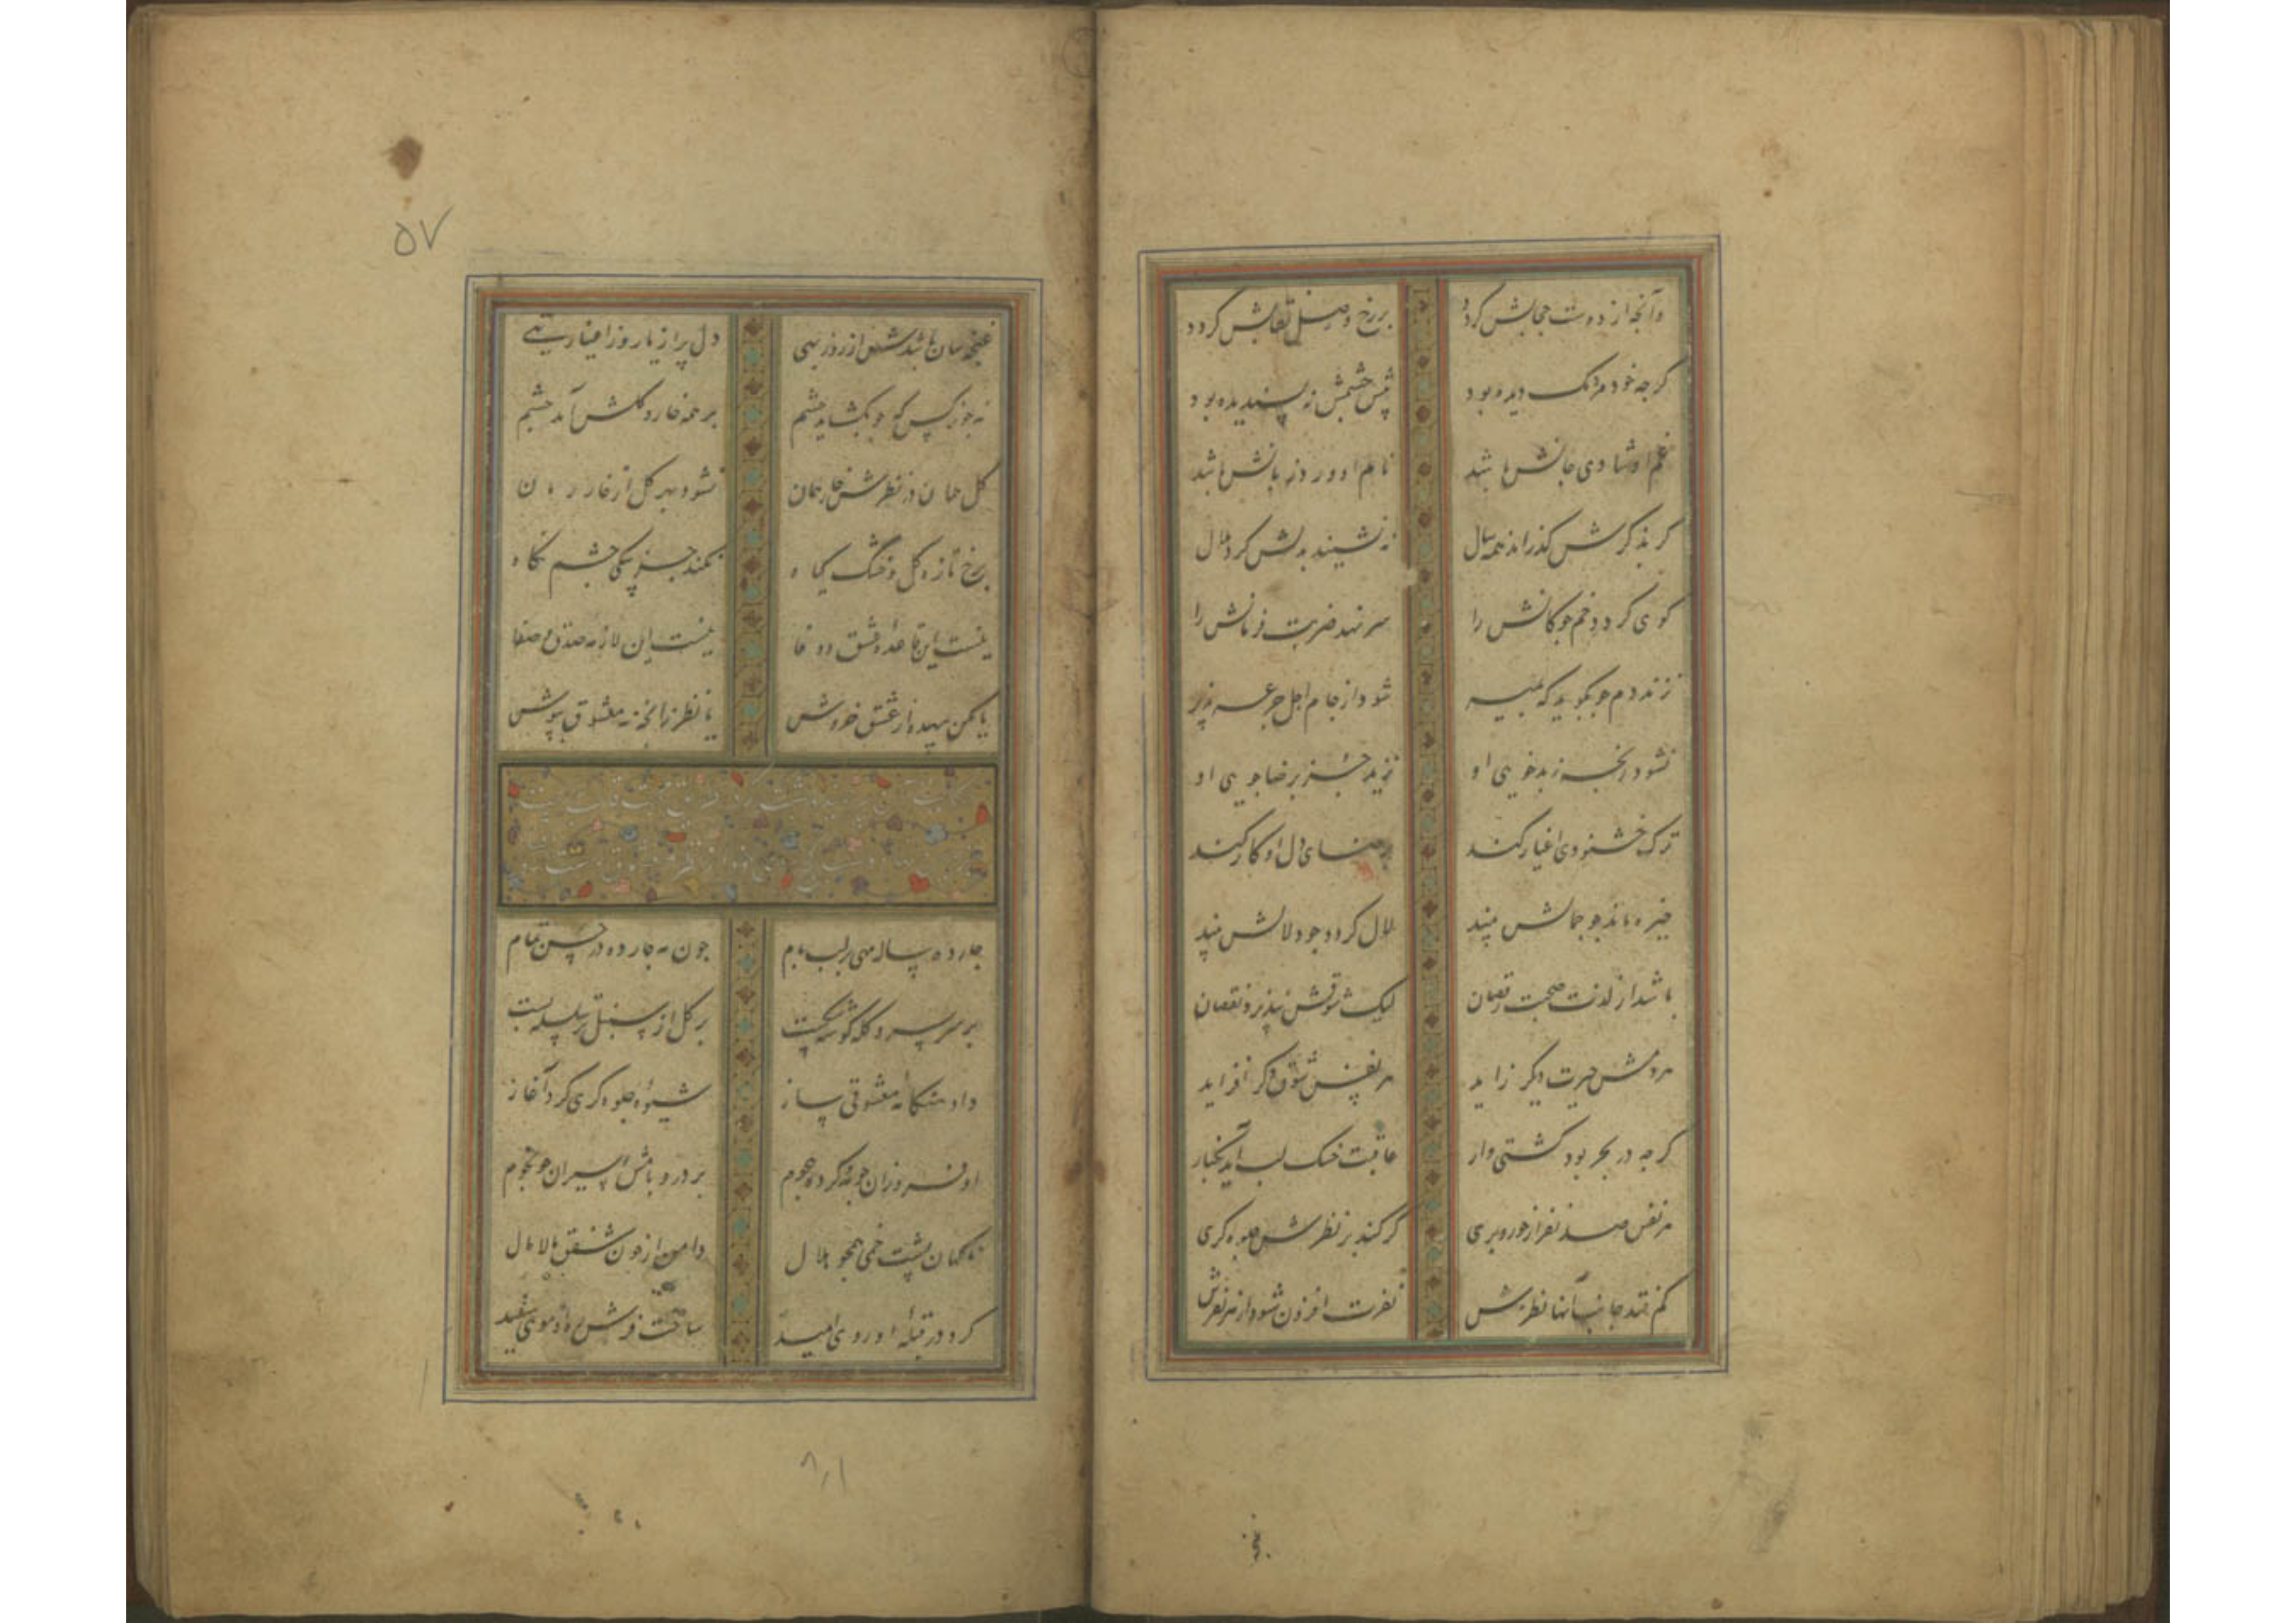 وآنچه از دوست حجابش کردد بر رخ وصل نقابش کردد
کر چه خود مردمک دیده بود پیش چشمش نه پسندیده بود
غم او شادی جانش باشد نام او ورد زبانش باشد
کر بذکرش کذراند همه سال ننشیند بدلش کرد ملال
کوی کردد خم چوکانش را سر نهد ضربت فرمانش را
نزند دم چو بکوید که بمیر شود از جام اجل جرعه پذیر
نشود رنجه ز بدخویی او نزید جز برضاجویی او
ترک خشنودی اغیار کند برضای دل او کار کند
خیره ماند چو جمالش بیند لال کردد چو دلالش بیند
باشد از لذت صحبت رقصان لیک شوقش نپذیرد نقصان
هر دمش حیرت دیکر زاید هر نفس شوق دکر افزاید
کر چه در بحر بود کشتی وار عاقبت خشک لب آید بکنار
هر نفس صد نفر از حور و پری کر کند بر نظرش جلوه کری
کم فتد جانب آنها نظرش نفرت افزون شود از هر نفرش
۵۷
غنچه سان باشدش از روز بهی دل پر از یار وز اغیار تهی
نه چو نرکس که چو بکشاید چشم بر همه خار و کلش آید چشم
کل همان در نظرش خار همان نشود بهر کل از خار رمان
برخ تازه کل و خشک کیاه نکند جز بیکی چشم نکاه
نیست این قاعده عشق و وفا نیست این لازمه صدق و صفا
یا مکن بیهده از عشق خروش یا نظر زانچه نه معشوق بپوش
چارده ساله مهی بر لب بام چون مه چارده در حسن تمام
بر سر سرو کله کوشه شکست بر کل از سنبل تر سلسله بست
داد هنکامه معشوقی ساز شیوه جلوه کری کرد آغاز
او فروزان چو مه کرده هجوم بر در و بامش اسیران چو نجوم
ناکهان پشت خمی همچو هلال دامن از خون شفق مالامال
کرد در قبله او روی امید ساخت فرش ره او موی سفید